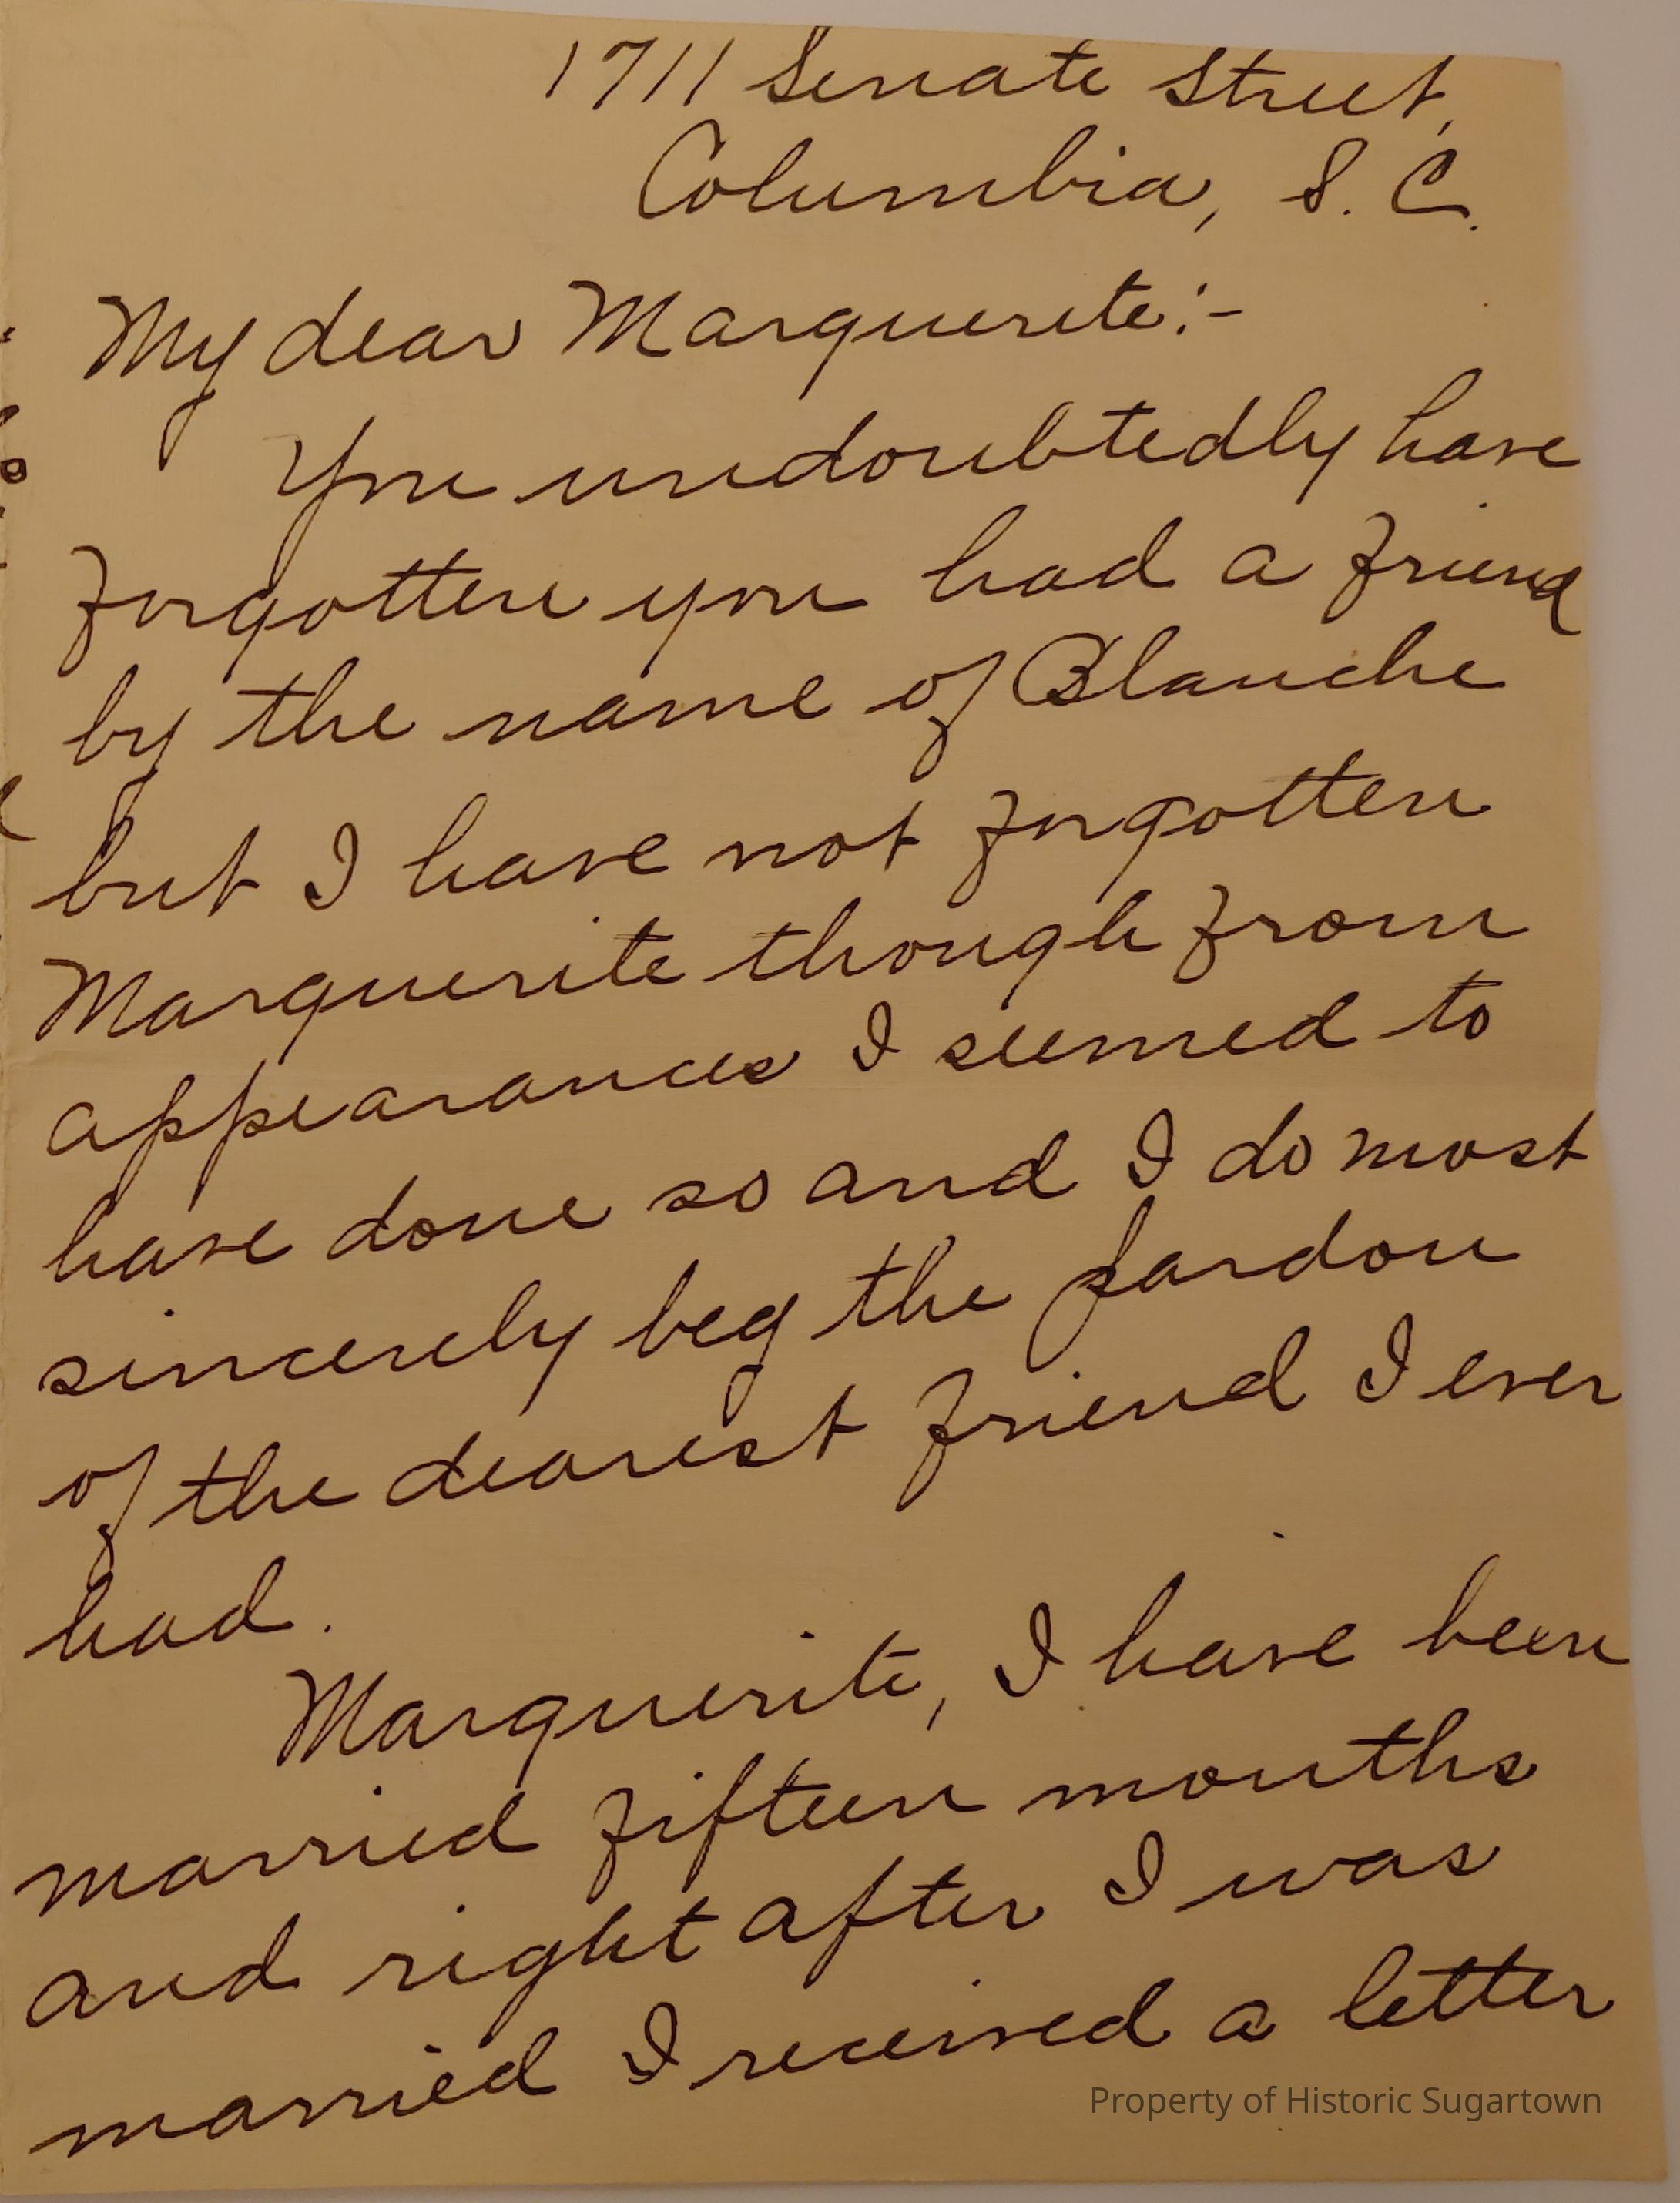 1711 Senate Street,
Columbia, S. C.
My dear Marguerite:-
You undoubtedly have
forgotten you had a friend
by the name of Blanche
but I have not forgotten
Marguerite though from
appearances I seemed to
have done so and I do most
sincerely beg the pardon
of the dearest friend I ever
had.
Marguerite, I have been
married fifteen months
and right after I was
married I received a letter
Property of Historic Sugartown